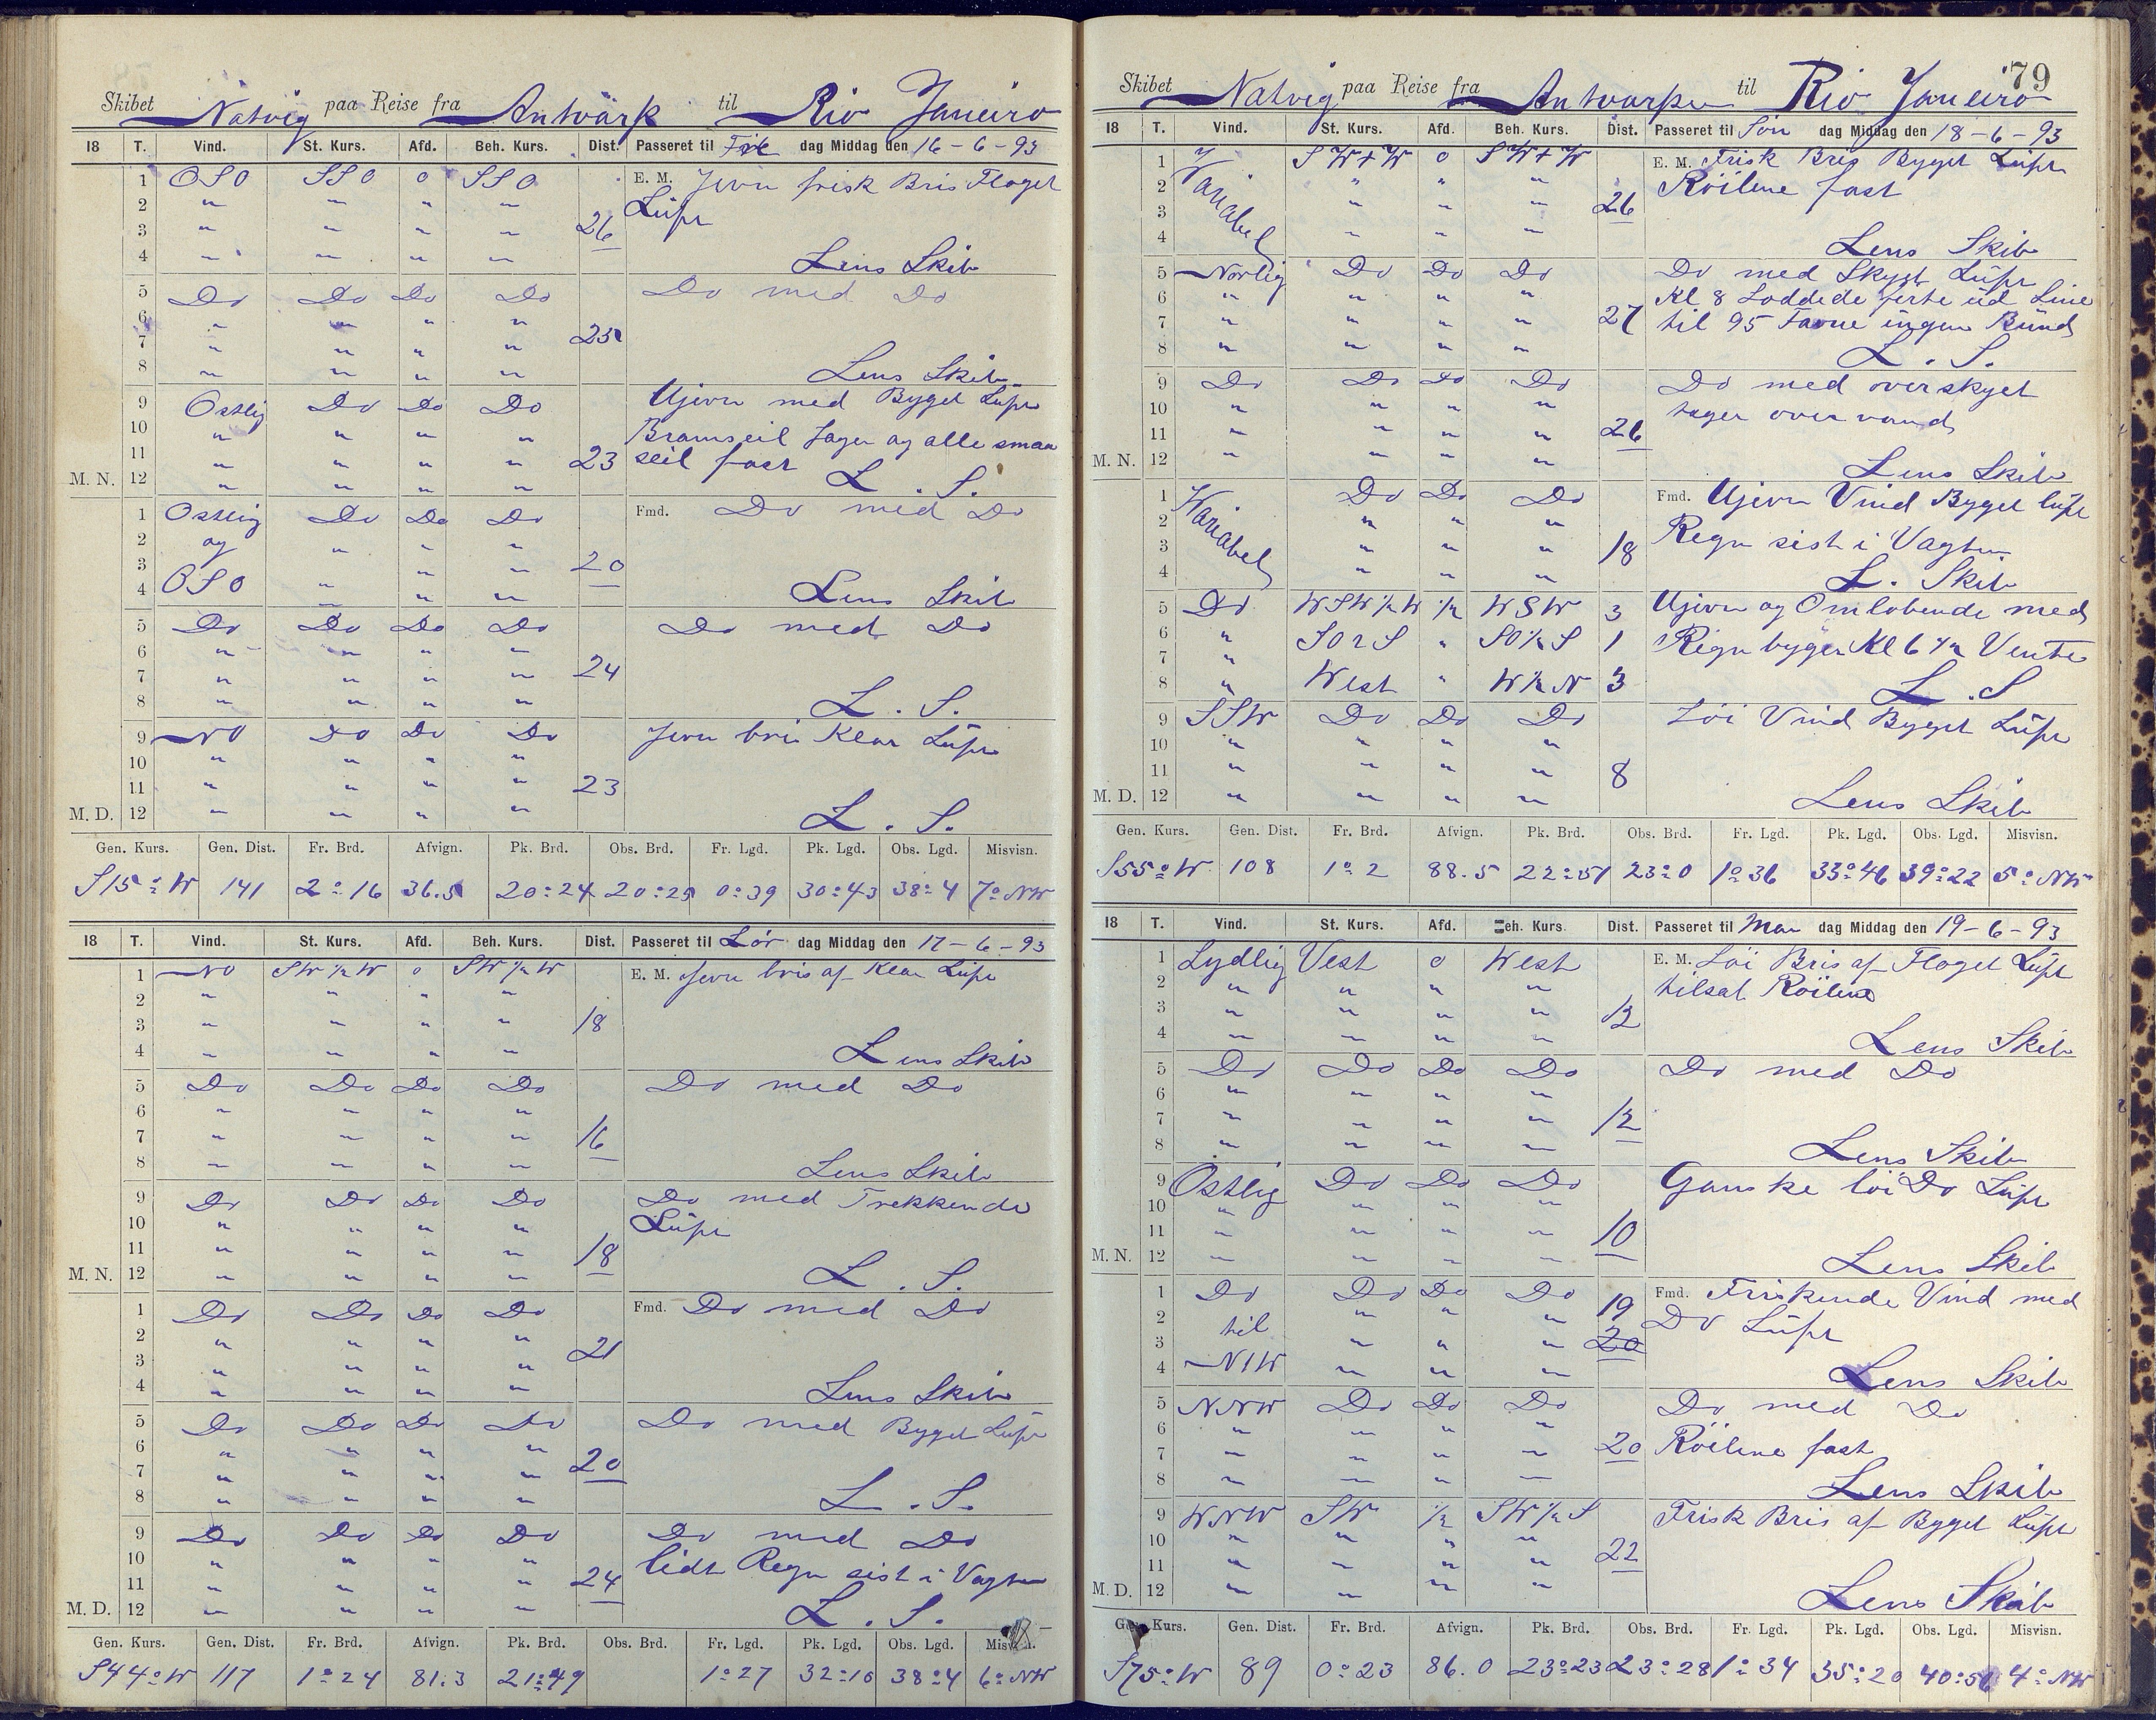 Skibet Natvig paa Reise fra Antwärk til Rio Janeiro
18 T. Vind. St. Kurs. Afd. Beh. Kurs. Dist. Passeret til Fre dag Middag den 16-6-93
1 OSO SSO 0 SSO E. M. Jevn frisk Bris Floget
2 " " " " Lüft
3 " " " " 26
4 " " " " Lens Skib
5 Do Do Do Do Do med Do
6 " " " "
7 " " " " 25
8 " " " " Lens Skib
9 Ostlig Do Do Do Ujevn med Byget Lüft
10 " " " " Bramseil Jager og alle smaa
11 " " " " 23 seil fast
M. N. 12 " " " " L. S.
1 Ostlig Do Do Do Fmd. Do med Do
2 og " " "
3 " " 20
4 OSO " " " Lens Skib
5 Do Do Do Do Do med Do
6 " " " "
7 " " " " 24
8 " " " " L. S.
9 NO Do Do Do Jevn bris Klar Lüft
10 " " " "
11 " " " " 23
M. D. 12 " " " " L. S.
Gen. Kurs. Gen. Dist. Fr. Brd. Afvign. Pk. Brd. Obs. Brd. Fr. Lgd. Pk. Lgd. Obs. Lgd. Misvisn.
S15°W 141 2°16 36.5 20°24 20°25 0°39 30°43 38°4 7°NW
18 T. Vind. St. Kurs. Afd. Beh. Kurs. Dist. Passeret til Lör dag Middag den 17-6-93
1 NO SW½W 0 SW½W E. M. Jevn bris af Klar Lüft
2 " " " "
3 " " " " 18
4 " " " " Lens Skib
5 Do Do Do Do Do med Do
6 " " " "
7 " " " " 16
8 " " " " Lens Skib
9 Do Do Do Do Do med Trekkende
10 " " " " Lüft
11 " " " " 18
M. N. 12 " " " " L. S.
1 Do Do Do Do Fmd. Do med Do
2 " " " "
3 " " " " 21
4 " " " " Lens Skib
5 Do Do Do Do Do med Byget Lüft
6 " " " "
7 " " " " 20
8 " " " " L. S.
9 Do Do Do Do Do med Do
10 " " " " lidt Regn sist i Vagten
11 " " " " 24
M. D. 12 " " " " L. S.
Gen. Kurs. Gen. Dist. Fr. Brd. Afvign. Pk. Brd. Obs. Brd. Fr. Lgd. Pk. Lgd. Obs. Lgd.
S44°W 117 1°24 81.3 21°49 1°27 32°10 38°4 6°NW
79
Skibet Natvig paa Reise fra Antwarpen til Rio Janeiro
18 T. Vind. St. Kurs. Afd. Beh. Kurs. Dist. Passeret til Sön dag Middag den 18-6-93
1 Variabel SW+W 0 SW+W E. M. Frisk Bris Byget Lüft
2 " " " Röilene fast
3 " " " 26
4 " " " Lens Skib
5 Norlig Do Do Do Do med Skyet Lüft
6 " " " " Kl 8 Loddede ud Line
7 " " " " 27 til 95 Favne ingen Bünd
8 " " " " L. S.
9 Do Do Do Do Do med overskyet
10 " " " " tager over vand
11 " " " " 26
M. N. 12 " " " " Lens Skib
1 Variabel Do Do Do Fmd. Ujevn Vind Byget lüft
2 " " " Regn sist i Vagten
3 " " " 18
4 " " " L. Skib
5 Do WSW½W ½ WSW 3 Ujevn og Omlobende med
6 " SOtS " SO½S 1 Regnbyger Kl 6½ Vente
7 "
8 " West " W½N 3 L. S
9 SSW Do Do Do Löi Vind Byget Lüft
10 " " " "
11 " " " " 8
M. D. 12 " " " " Lens Skib
Gen. Kurs. Gen. Dist. Fr. Brd. Afvign. Pk. Brd. Obs. Brd. Fr. Lgd. Pk. Lgd. Obs. Lgd. Misvisn.
S55°W 108 1°2 88.5 22°51 23°0 1°36 33°46 39°22 5°NW
18 T. Vind. St. Kurs. Afd. Beh. Kurs. Dist. Passeret til Man dag Middag den 19-6-93
1 Sydlig Vest 0 West E. M. Löi Bris af Floget Lüft
2 " " " " tilsat Röilene
3 " " " " 12
4 " " " " Lens Skib
5 Do Do Do Do Do med Do
6 " " " "
7 " " " " 12
8 " " " " Lens Skib
9 Ostlig Do Do Do Ganske löi Do Lüft
10 " " " "
11 " " " " 10
M. N. 12 " " " " Lens Skib
1 Do Do Do Do 19 Fmd. Friskende Vind med
2 til " " " Do Lüft
3 " " " 20
4 NNW " " " Lens Skib
5 NNW Do Do Do Do med Do
6 " " " "
7 " " " " 20 Röilene fast
8 " " " " Lens Skib
9 WNW SW ½ SW½S Frisk Bris af Byget Lüft
10 " " " "
11 " " " " 22
M. D. 12 " " " " Lens Skib
Kurs. Gen. Dist. Fr. Brd. Afvign. Pk. Brd. Obs. Brd. Fr. Lgd. Pk. Lgd. Obs. Lgd. Misvisn.
S75°W 89 0°23 86.0 23°23 23°28 1°34 35°20 40°56 4°NW